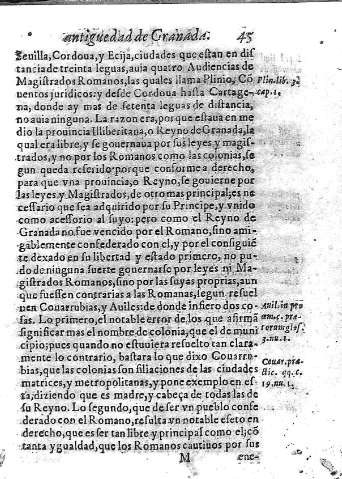 antiguedad de Granada. 45
Seuilla, Cordoua, y Ecija, ciudades que estan en dis
tancia de treinta leguas, auia quatro Audiencias de
Magistrados Romanos, las quales llama Plinio, Cõ Plin. lib. 3.
uentos juridicos: y desde Cordoua hasta Cartage- cap. 1.
na, donde ay mas de setenta leguas de distancia,
no auia ninguna. La razon era, porque estaua en me
dio la prouincia Illiberitana, o Reyno de Granada, la
qual era libre, y se gouernaua por sus leyes y magis-
trados, y no por los Romanos como las colonias, se
gun queda referido porque conforme a derecho,
para que vna prouincia, o Reyno, se gouierne por
las leyes y Magistrados, de otro mas principal; es ne
cessario que sea adquirido por su Principe, y vnido
como acessorio al suyo: pero como el Reyno de
Granada no fue vencido por el Romano, sino ami-
gablemente confederado con el, y por el consiguiẽ
te dexado en su libertad y estado primero, no pu-
do de ninguna suerte gouernarse por leyes ni Ma-
gistrados Romanos, sino por las suyas proprias, aun
que fuessen contrarias a las Romanas, segun resuel
uen Couarrubias, y Auiles: de donde infiero dos co- Auil. in pro
sas. Lo primero, el notable error de los que afirmã
significar mas el nombre de colonia, que el de muni
cipio; pues quando no estuuiera resuelto tan clara- 3. nu. 1.
mente lo contrario, bastara lo que dixo Couarru-
bias, que las colonias son filiaciones de las ciudades Couar. pra-
matrices, y metropolitanas, y pone exemplo en es- ctic. qq. c.
ta, diziendo que es madre, y cabeça de todas las de 19. nu. 1.
su Reyno. Lo segundo, que de ser vn pueblo confe
derado con el Romano, resulta vn notable efeto en
derecho, que es ser tan libre y principal como el; cõ
tanta ygualdad, que los Romanos cautiuos por sus
M ene-